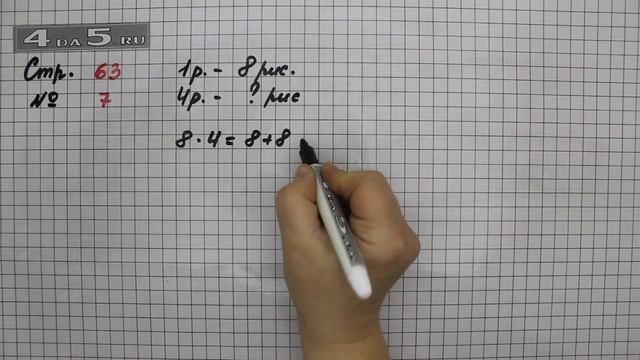 4DA5.RU
Стр. 63
№ 7
1р. - 8 рис.
4р. - ? рис
8 · 4 = 8 + 8